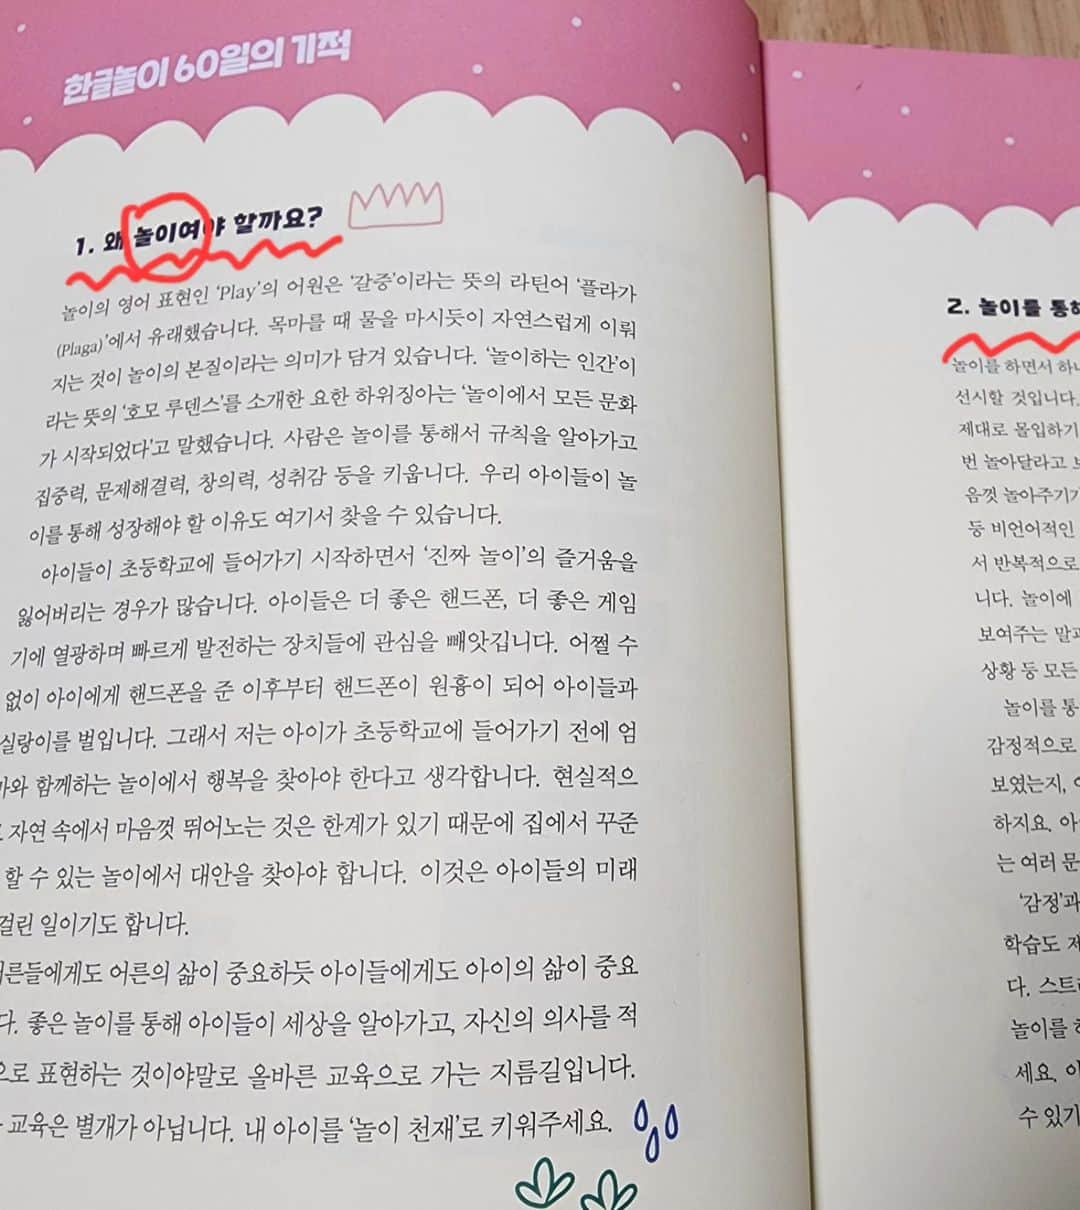 한글놀이 60일의 기적
1. 왜 놀이여야 할까요?
놀이의 영어 표현인 'Play'의 어원은 '갈증'이라는 뜻의 라틴어 '플라가
(Plaga)'에서 유래했습니다. 목마를 때 물을 마시듯이 자연스럽게 이뤄
지는 것이 놀이의 본질이라는 의미가 담겨 있습니다. '놀이하는 인간'이
라는 뜻의 '호모 루덴스'를 소개한 요한 하위징아는 '놀이에서 모든 문화
가 시작되었다'고 말했습니다. 사람은 놀이를 통해서 규칙을 알아가고
집중력, 문제해결력, 창의력, 성취감 등을 키웁니다. 우리 아이들이 놀
이를 통해 성장해야 할 이유도 여기서 찾을 수 있습니다.
아이들이 초등학교에 들어가기 시작하면서 '진짜 놀이'의 즐거움을
잃어버리는 경우가 많습니다. 아이들은 더 좋은 핸드폰, 더 좋은 게임
기에 열광하며 빠르게 발전하는 장치들에 관심을 빼앗깁니다. 어쩔 수
없이 아이에게 핸드폰을 준 이후부터 핸드폰이 원흉이 되어 아이들과
실랑이를 벌입니다. 그래서 저는 아이가 초등학교에 들어가기 전에 엄
마와 함께하는 놀이에서 행복을 찾아야 한다고 생각합니다. 현실적으
자연 속에서 마음껏 뛰어노는 것은 한계가 있기 때문에 집에서 꾸준
할 수 있는 놀이에서 대안을 찾아야 합니다. 이것은 아이들의 미래
걸린 일이기도 합니다.
어른들에게도 어른의 삶이 중요하듯 아이들에게도 아이의 삶이 중요
다. 좋은 놀이를 통해 아이들이 세상을 알아가고, 자신의 의사를 적
으로 표현하는 것이야말로 올바른 교육으로 가는 지름길입니다.
교육은 별개가 아닙니다. 내 아이를 '놀이 천재'로 키워주세요.
2. 놀이를 통해
놀이를 하면서 하
선시할 것입니다.
제대로 몰입하기
번 놀아달라고
음껏 놀아주기
등 비언어적인
서 반복적으로
니다. 놀이에
보여주는 말과
상황 등 모든
놀이를 통
감정적으로
보였는지,
하지요. 아
는 여러 문
'감정'과
학습도
다. 스트
놀이를
세요.
수 있기